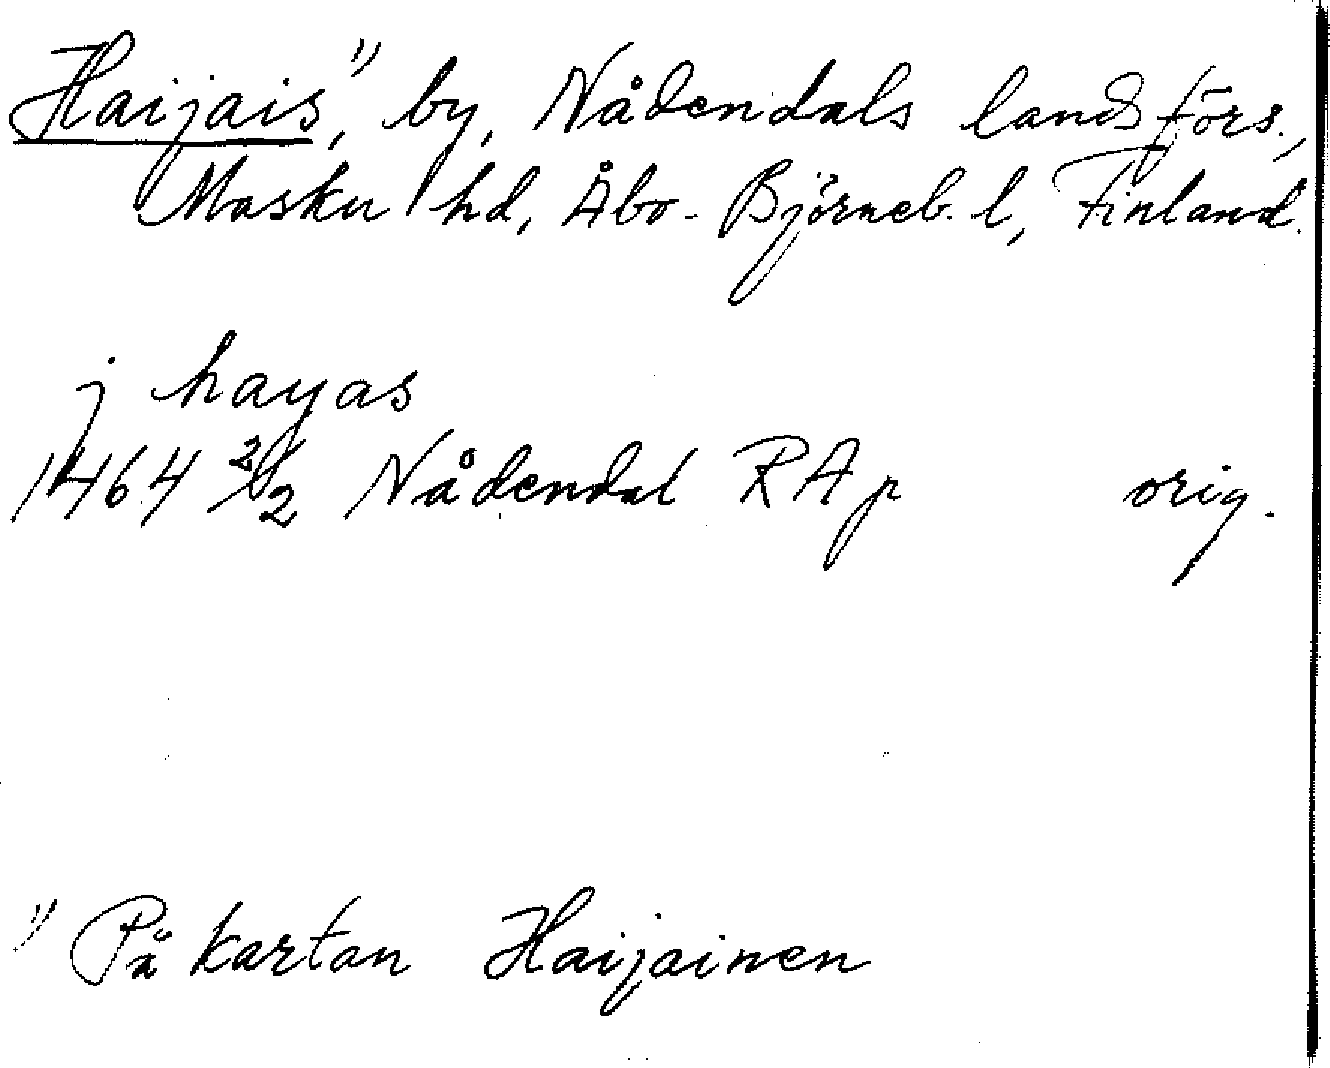 Haijais,¹⁾ by, Nådendals landsförs.,
Masku hd, Åbo-Björneb. l, Finland.
j hayas
1464 2/2 Nådendal RAp orig.
¹⁾ På kartan Haijainen